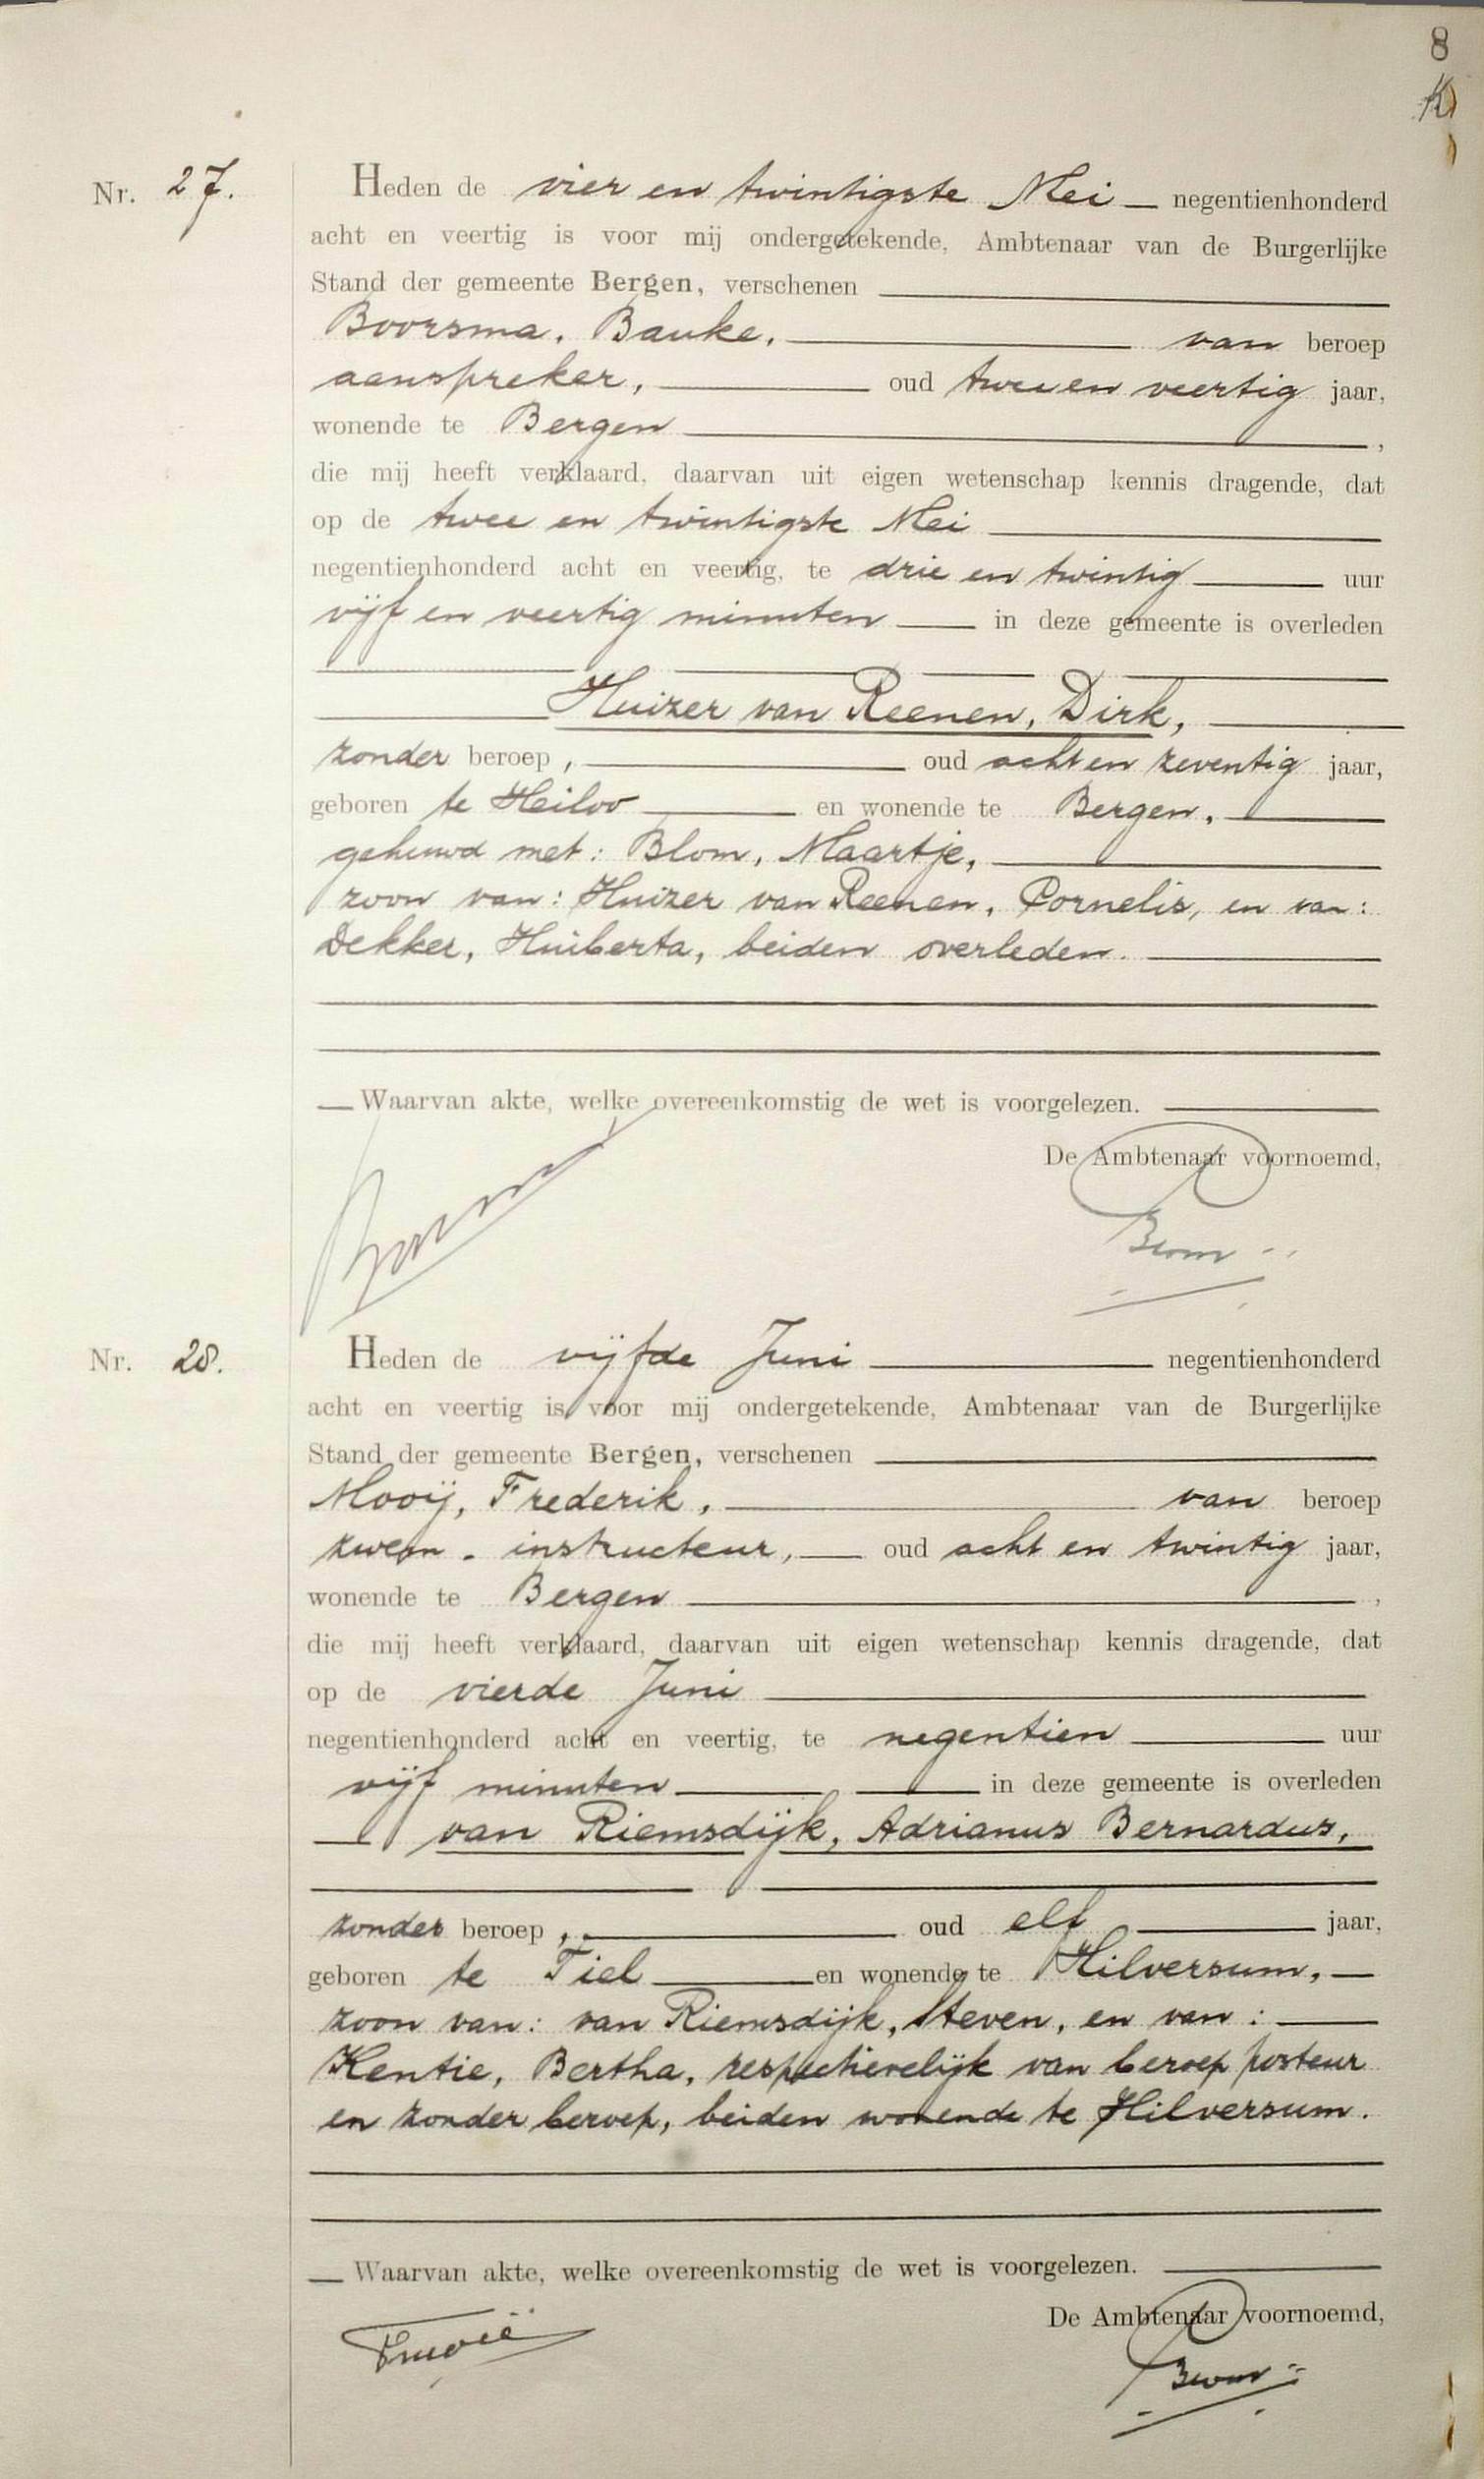 8
K
Nr. 27. Heden de vier en twintigste Mei negentienhonderd
acht en veertig is voor mij ondergetekende, Ambtenaar van de Burgerlijke
Stand der gemeente Bergen, verschenen
Boorsma, Bauke, van beroep
aanspreker, oud twee en veertig jaar,
wonende te Bergen ,
die mij heeft verklaard, daarvan uit eigen wetenschap kennis dragende, dat
op de twee en twintigste Mei
negentienhonderd acht en veertig, te drie en twintig uur
vijf en veertig minuten in deze gemeente is overleden
Huizer van Reenen, Dirk,
zonder beroep, oud acht en zeventig jaar,
geboren te Heiloo en wonende te Bergen,
gehuwd met: Blom, Maartje,
zoon van: Huizer van Reenen, Cornelis, en van:
Dekker, Huiberta, beiden overleden.
Waarvan akte, welke overeenkomstig de wet is voorgelezen.
De Ambtenaar voornoemd,
Nr. 28. Heden de vijfde Juni negentienhonderd
acht en veertig is voor mij ondergetekende, Ambtenaar van de Burgerlijke
Stand der gemeente Bergen, verschenen
Mooij, Frederik, van beroep
zwem-instructeur, oud acht en twintig jaar,
wonende te Bergen ,
die mij heeft verklaard, daarvan uit eigen wetenschap kennis dragende, dat
op de vierde Juni
negentienhonderd acht en veertig, te negentien uur
vijf minuten in deze gemeente is overleden
van Riemsdijk, Adrianus Bernardus,
zonder beroep, oud elf jaar,
geboren te Tiel en wonende te Hilversum,
zoon van: van Riemsdijk, Steven, en van:
Kentie, Bertha, respectievelijk van beroep posteur
en zonder beroep, beiden wonende te Hilversum.
Waarvan akte, welke overeenkomstig de wet is voorgelezen.
De Ambtenaar voornoemd,